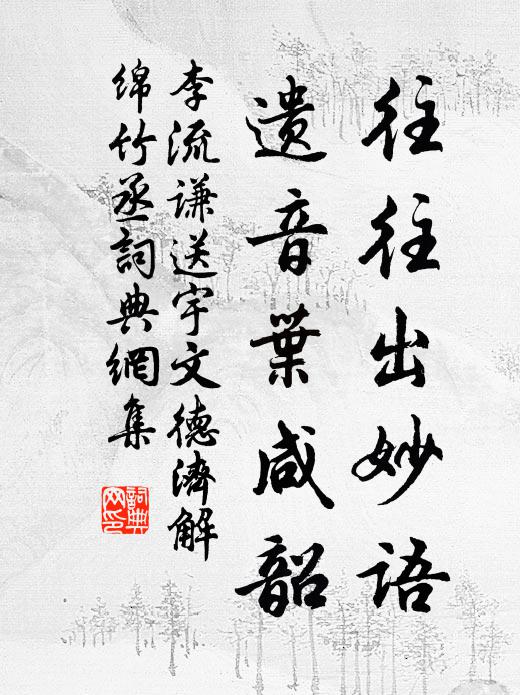 往往出妙语
遗音叶咸韶
李流谦送宇文德济解
绵竹丞詞典網集
詞典网印